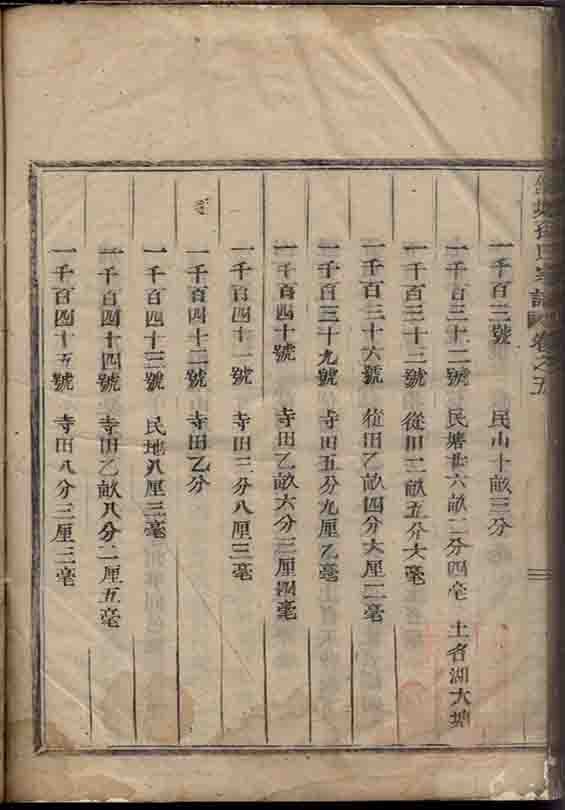 氏家譜 卷之五
一千百三號 民山十畝三分
一千百三十二號 民塘 六畝二分四毫 土者湖大塘
一千百三十三號 從田二畝五分六毫
一千百三十六號 從田乙畝四分六厘二毫
一千百三十九號 寺田五分九厘乙毫
一千百四十號 寺田乙畝六分三厘四毫
一千百四十一號 寺田三分八厘三毫
一千百四十二號 寺田乙分
一千百四十三號 民地八厘三毫
一千百四十四號 寺田乙畝八分二厘五毫
一千百四十五號 寺田八分三厘三毫